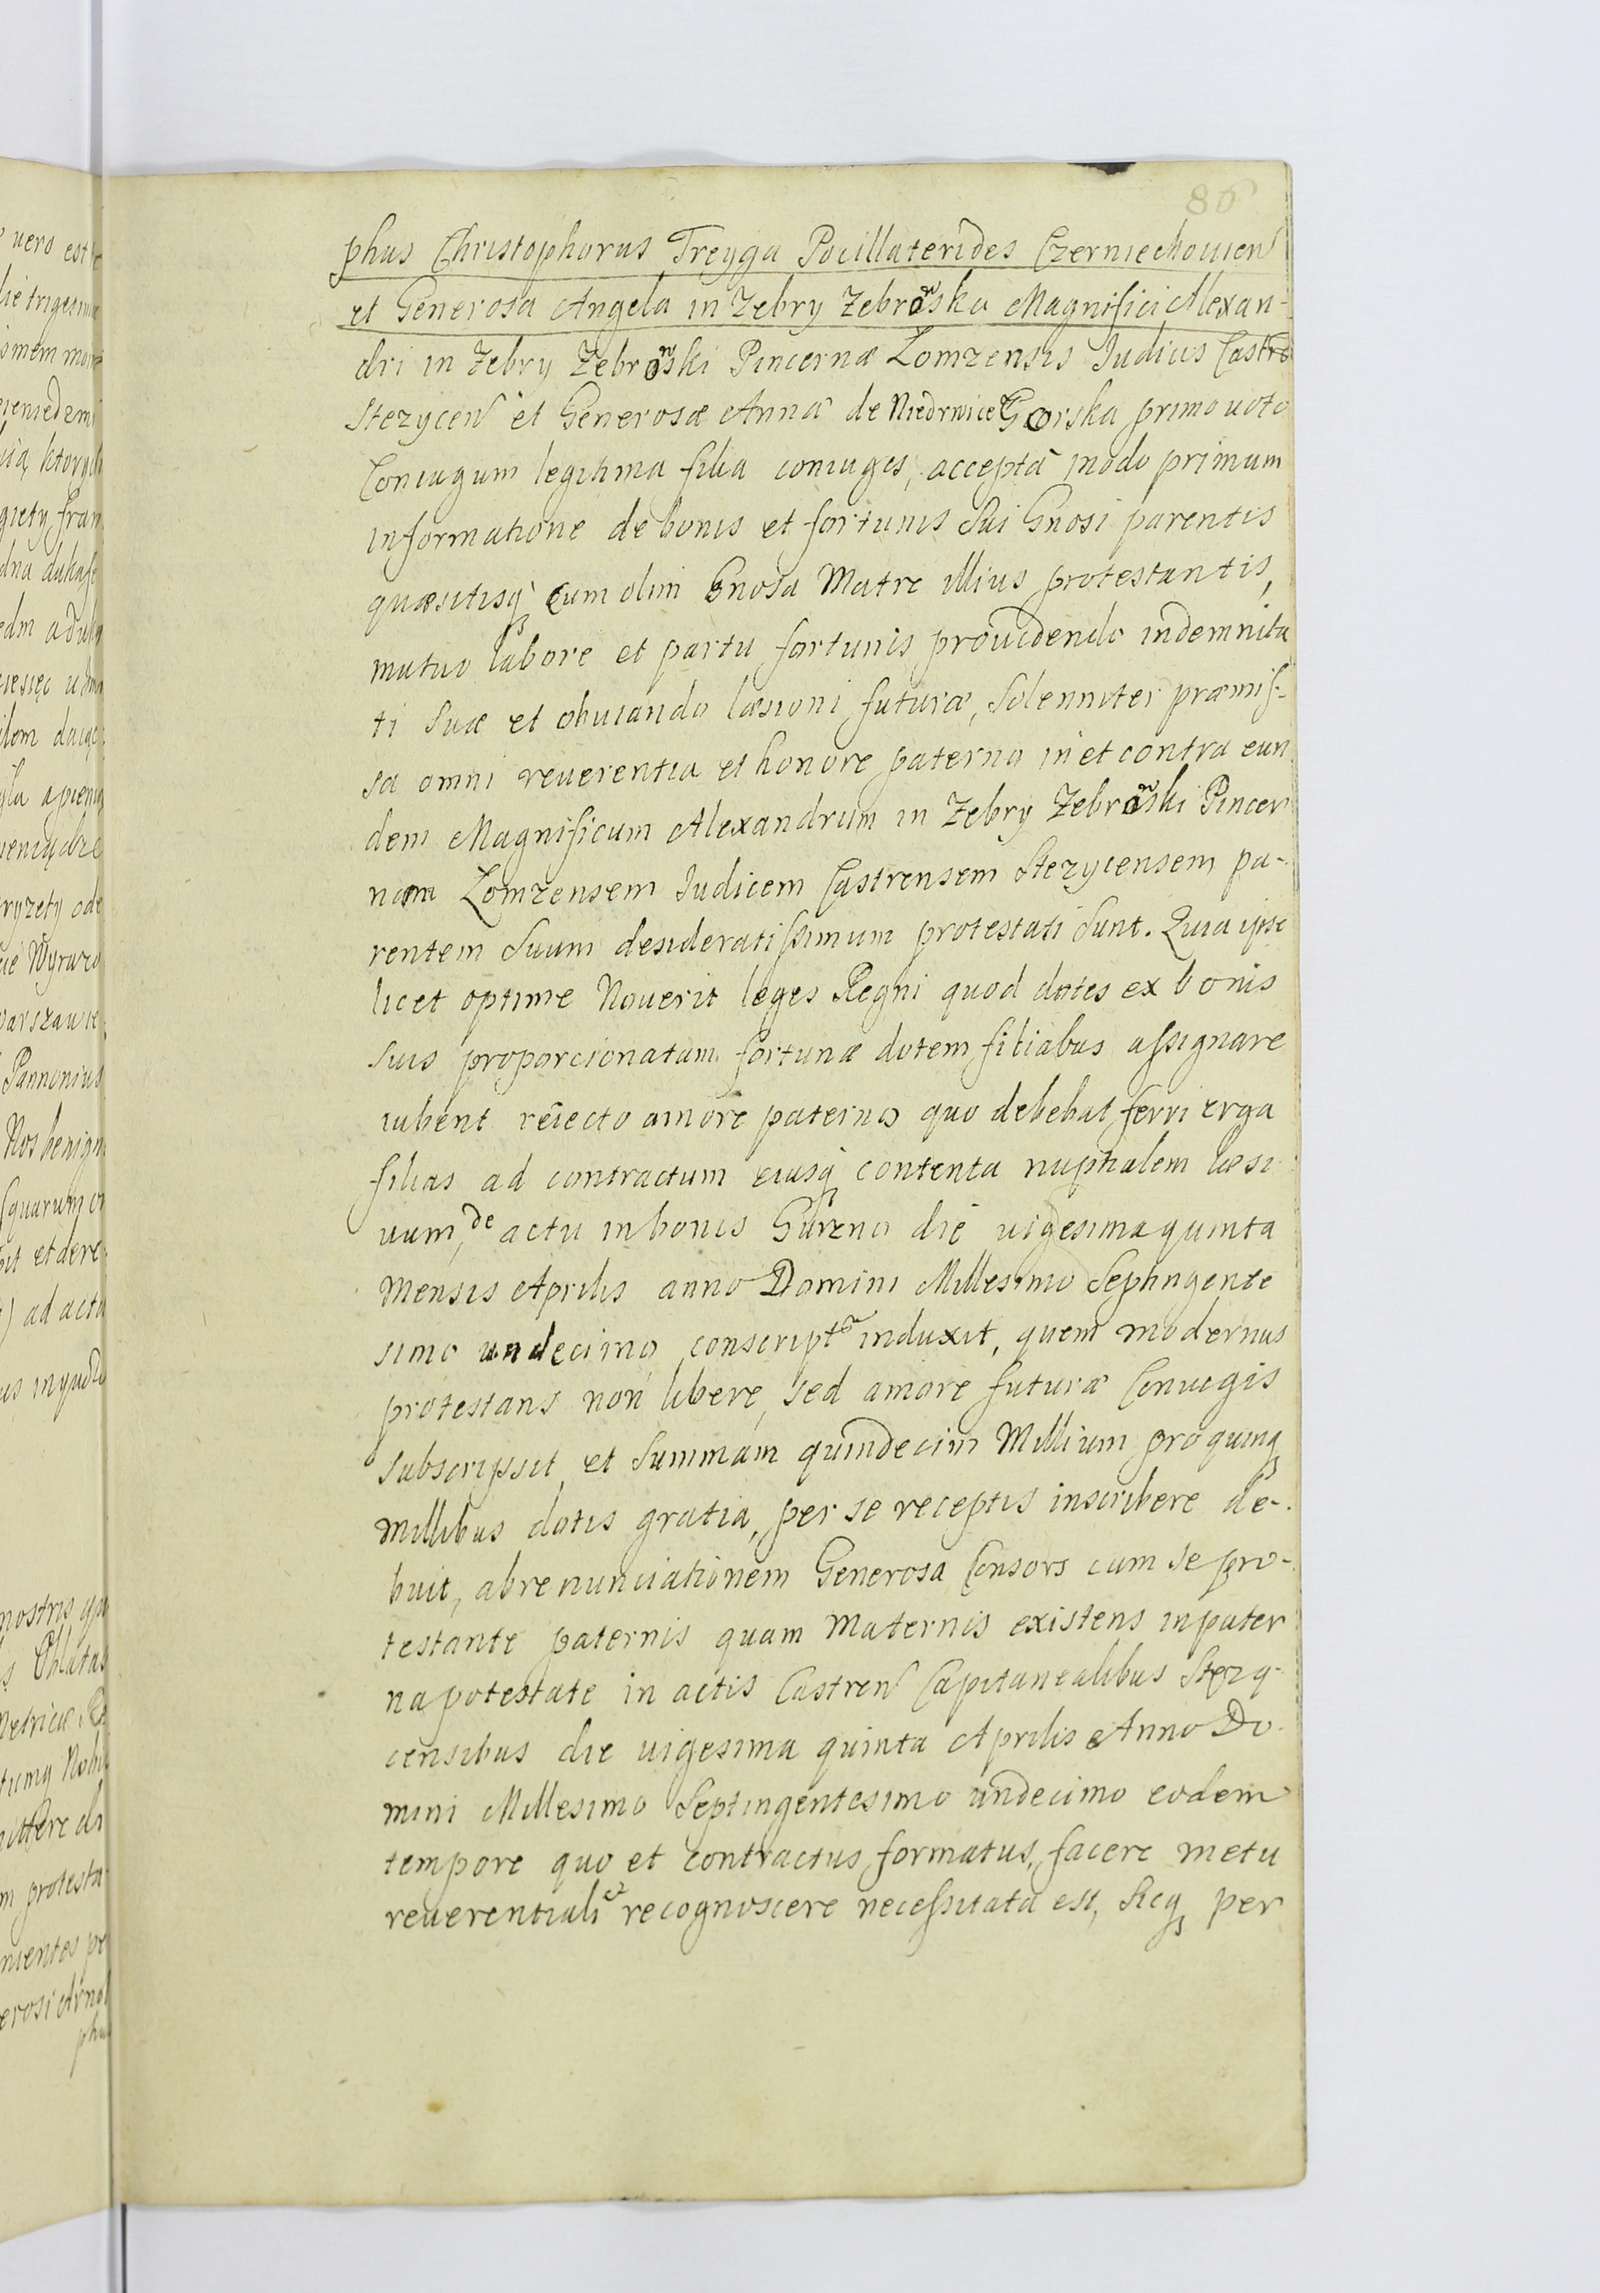 86
phus Christophorus Treyga Pocillaterides Czerniechouien
et Generosa Angela in Zebry Zebrowska Magnifici Alexan-
dri in Zebry Zebrowski Pincernæ Lomzensis Iudicis Castre
Stezycen et Generosæ Anna de Niedrwice Gorska primo uoto
Coniugum legitima filia coniuges, accepta modo primum
informatione de bonis et fortunis Sui Gnosi parentis
quæsitisq cum olim Gnosa Matre illius protestantis,
mutuo labore et partu fortunis prouidendo indemnita
ti Suæ et obuiando læsioni futuræ, Solenniter præmis-
sa omni reuerentia et honore paterno in et contra eun
dem Magnificum Alexandrum in Zebry Zebrowski Pincer
nam Lomzensem Iudicem Castrensem Stezycensem pa-
rentem Suum desideratissimum protestati Sunt. Quia ipse
licet optime Nouerit leges Regni quod dotes ex bonis
Suis proporcionatam fortunæ dotem filiabus assignare
iubent reiecto amore paterno quo debebat ferri erga
filias ad contractum eiusq contenta nuptialem læsi
uum, de actu in bonis Gurzno die uigesima quinta
Mensis Aprilis anno Domini Millesimo Septingente
simo undecimo conscript induxit, quem modernus
protestans non libere, sed amore futuræ Coniugis
Subscripsit et Summam quindecim Millium pro quinq
Millibus dotis gratia, per se receptis inscribere de-
buit, abrenunciationem Generosa Consors cum se pro-
testante paternis quam Maternis existens in pater
na potestate in actis Castren Capitanealibus Stezy-
censibus die uigesima quinta Aprilis Anno Do-
mini Millesimo Septingentesimo undecimo eodem
tempore quo et contractus formatus, facere metu
reuerentiali et recognoscere necessitata est, Sicq per